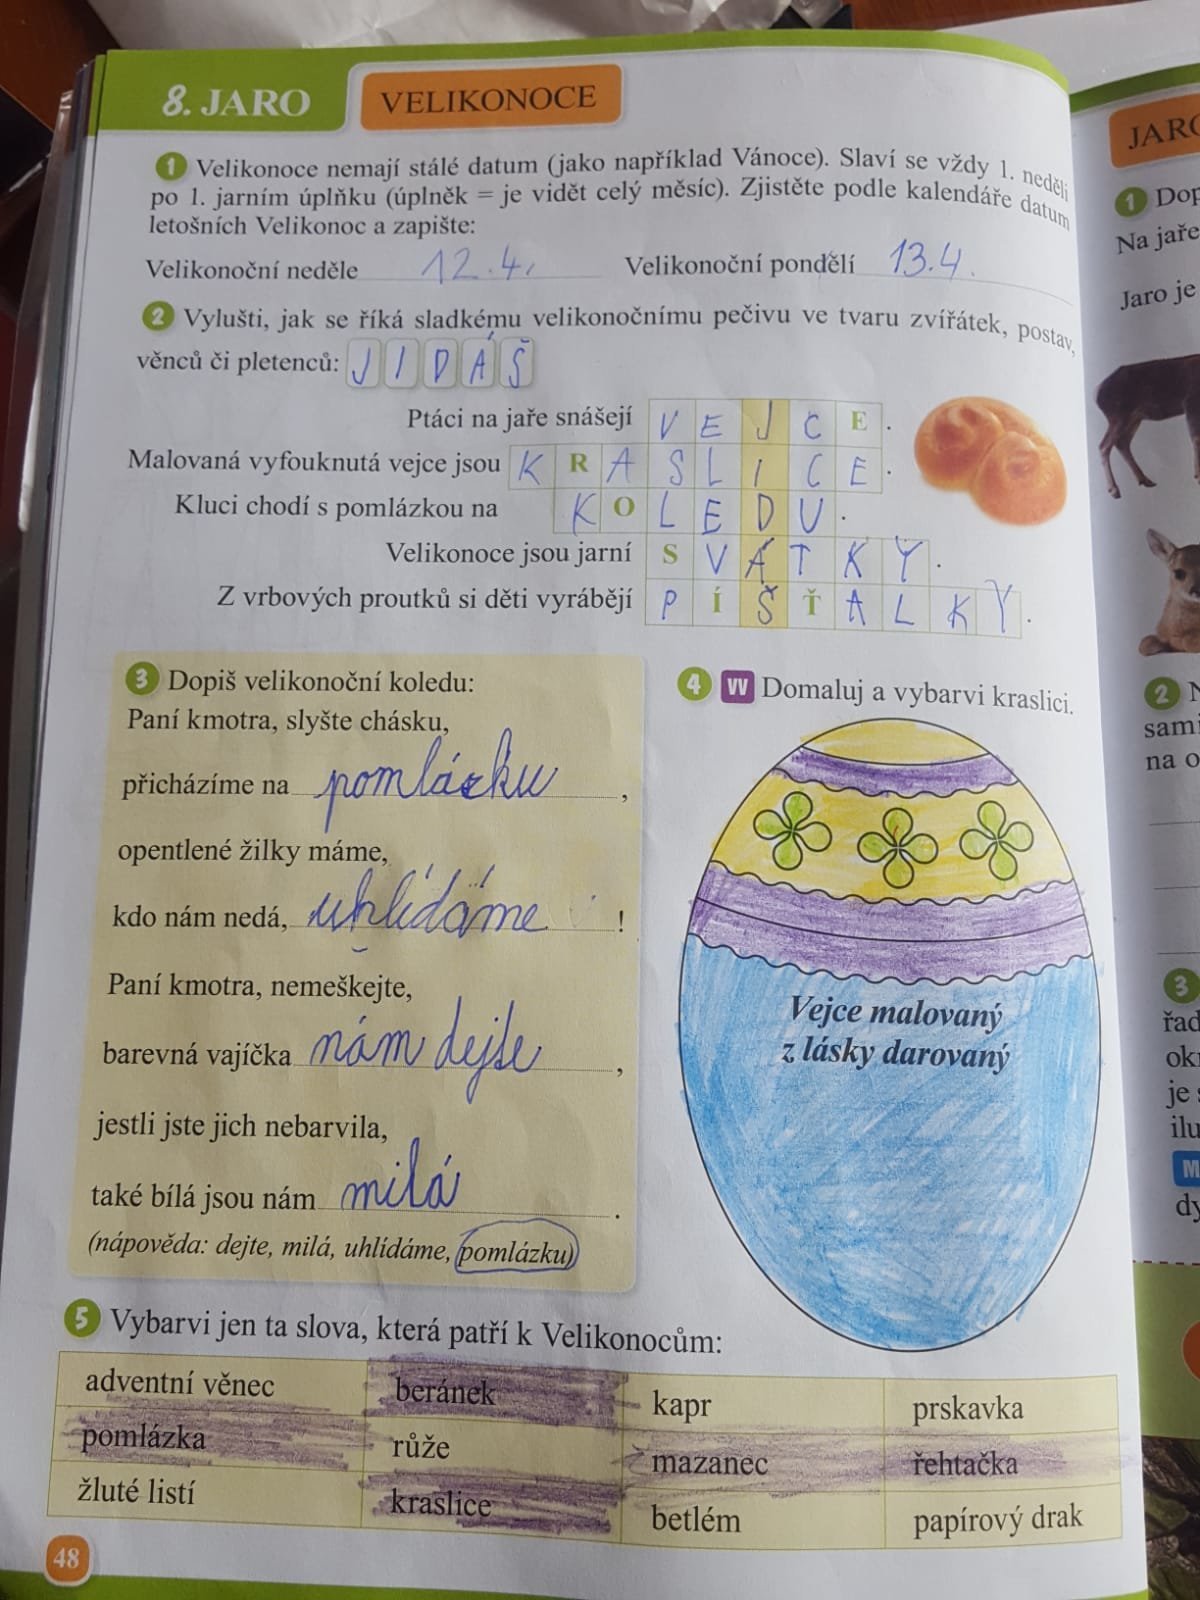 8. JARO VELIKONOCE
1 Velikonoce nemají stálé datum (jako například Vánoce). Slaví se vždy 1. neděli
po 1. jarním úplňku (úplněk = je vidět celý měsíc). Zjistěte podle kalendáře datum
letošních Velikonoc a zapište:
Velikonoční neděle 12.4. Velikonoční pondělí 13.4.
2 Vylušti, jak se říká sladkému velikonočnímu pečivu ve tvaru zvířátek, postav,
věnců či pletenců: JIDÁŠ
Ptáci na jaře snášejí VEJCE.
Malovaná vyfouknutá vejce jsou KRASLICE.
Kluci chodí s pomlázkou na KOLEDU.
Velikonoce jsou jarní SVÁTKY.
Z vrbových proutků si děti vyrábějí PÍŠŤALKY.
3 Dopiš velikonoční koledu:
Paní kmotra, slyšte chásku,
přicházíme na pomlázku,
opentlené žilky máme,
kdo nám nedá, uhlídáme!
Paní kmotra, nemeškejte,
barevná vajíčka nám dejte,
jestli jste jich nebarvila,
také bílá jsou nám milá.
(nápověda: dejte, milá, uhlídáme, pomlázku)
4 VV Domaluj a vybarvi kraslici.
Vejce malovaný
z lásky darovaný
5 Vybarvi jen ta slova, která patří k Velikonocům:
adventní věnec beránek kapr prskavka
pomlázka růže mazanec řehtačka
žluté listí kraslice betlém papírový drak
48
1
Na jaře
Jaro je
2
sami
na o
3
řad
okr
je s
ilu
M
dy